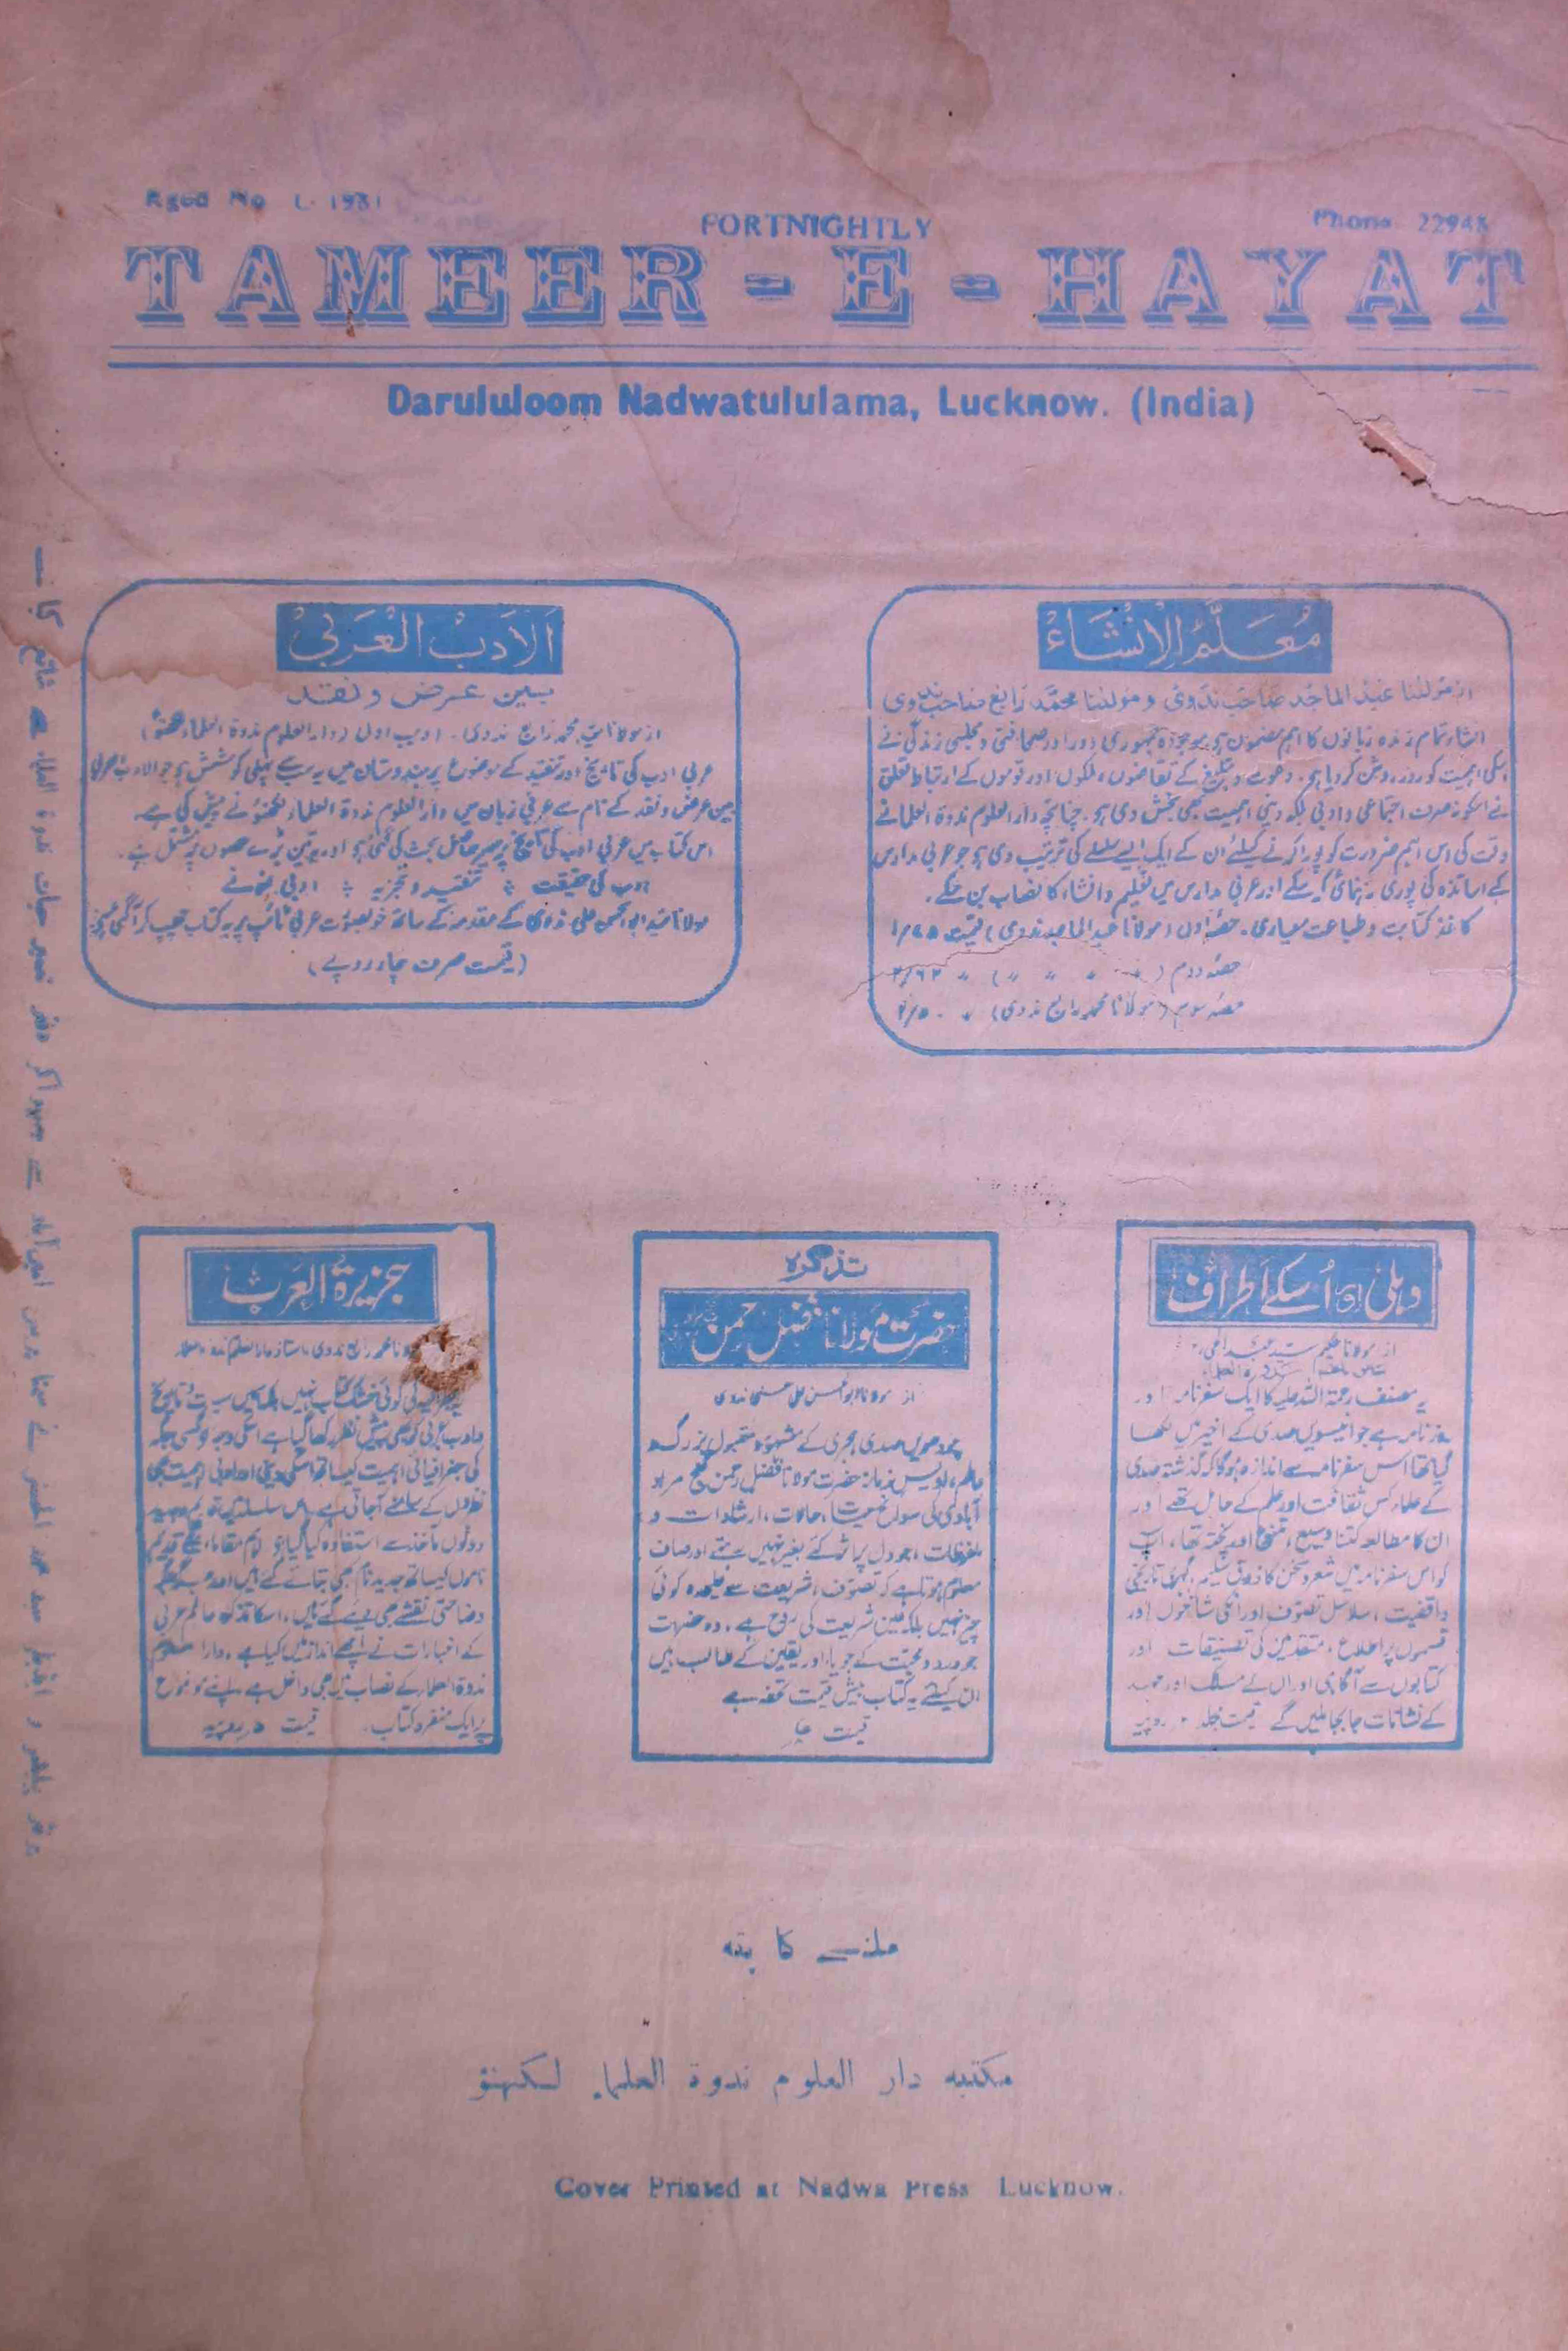 Regd No L. 1981
FORTNIGHTLY
Phone 22948
TAMEER-E-HAYAT
Darululoom Nadwatululama, Lucknow. (India)
مُعَلِّمُ الْاِنْشَاءْ
از مولٰنا عبد الماجد صاحب ندوی و مولٰنا محمد رابع صاحب ندوی
انشاء تمام زندہ زبانوں کا اہم مضمون ہے، موجودہ جمہوری دور اور صحافتی و مجلسی زندگی نے
اسکی اہمیت کو روز روشن کر دیا ہے۔ دعوت و تبلیغ کے تقاضوں، ملکوں اور قوموں کے ارتباط و تعلق
نے اسکو نہ صرف اجتماعی و ادبی بلکہ دینی اہمیت بھی بخش دی ہے۔ چنانچہ دار العلوم ندوۃ العلماء نے
وقت کی اس اہم ضرورت کو پورا کرنے کیلئے ان کے ایک ایسے سلسلے کی ترتیب دی ہے جو عربی مدارس
کے اساتذہ کی پوری رہنمائی کر سکے اور عربی مدارس میں تعلیم و انشاء کا نصاب بن سکے۔
کاغذ کتابت و طباعت معیاری۔ حصہ اول (مولانا عبد الماجد ندوی) قیمت ۱/۷۵
حصہ دوم ( " " " ) " ۲/۶۲
حصہ سوم (مولانا محمد رابع ندوی) " ۲/۵۰
اَلاَدَبُ الْعَرَبِیْ
بین عرض و نقد
از مولانا سید محمد رابع ندوی۔ ادیب اول (دار العلوم ندوۃ العلماء لکھنؤ)
عربی ادب کی تاریخ اور تنقید کے موضوع پر ہندوستان میں یہ سب سے پہلی کوشش ہے جو الادب العربی
بین عرض و نقد کے نام سے عربی زبان میں دار العلوم ندوۃ العلماء لکھنؤ نے پیش کی ہے۔
اس کتاب میں عربی ادب کی تاریخ پر سیر حاصل بحث کی گئی ہے اور یہ تین بڑے حصوں پر مشتمل ہے۔
ادب کی حقیقت ؞ تنقید و تجزیہ ؞ ادبی نمونے
مولانا سید ابوالحسن علی ندوی کے مقدمہ کے ساتھ خوبصورت عربی ٹائپ پر یہ کتاب چھپ کر آ گئی ہے
(قیمت صرف چار روپے)
دہلی اور اُسکے اَطراف
از مولانا حکیم سید عبد الحی
سابق ناظم ندوۃ العلماء
یہ مصنف رحمۃ اللہ علیہ کا ایک سفرنامہ اور
روزنامہ ہے جو انیسویں صدی کے اخیر میں لکھا
گیا تھا اس سفرنامہ سے اندازہ ہوگا کہ گذشتہ صدی
کے علماء کس ثقافت اور علم کے حامل تھے اور
ان کا مطالعہ کتنا وسیع، متنوع اور پختہ تھا، آپ
کو اس سفرنامہ میں شعر و سخن کا ذوق سلیم، گہری تاریخی
واقفیت، سلاسل تصوف اور انکی شاخوں اور
قسموں پر اطلاع، متقدمین کی تصنیفات اور
کتابوں سے آگاہی اور ان کے مسلک اور
کے نشانات جا بجا ملیں گے قیمت مجلد روپیہ
تذکرہ
حضرت مولانا فضل رحمن
از مولانا ابوالحسن علی حسنی ندوی
چودھویں صدی ہجری کے مشہور و مقبول بزرگ
عالم، اویس زمانہ حضرت مولانا فضل رحمن گنج مراد
آبادی کی سوانح حیات، حالات، ارشادات و
ملفوظات، جو دل پر اثر کئے بغیر نہیں رہتے اور صاف
معلوم ہوتا ہے کہ تصوف، شریعت سے علیحدہ کوئی
چیز نہیں بلکہ عین شریعت کی روح ہے، وہ حضرات
جو درد و محبت کے جویا، اور یقین کے طالب ہیں
ان کیلئے یہ کتاب بیش قیمت تحفہ ہے
قیمت
جزیرۃ العرب
مولانا محمد رابع ندوی، استاذ دار العلوم ندوۃ العلماء
یہ جغرافیہ کی کوئی خشک کتاب نہیں بلکہ اس میں سیرت و تاریخ
و ادب عربی کو بھی پیش نظر رکھا گیا ہے اسکی وجہ سے کسی جگہ
کی جغرافیائی اہمیت کیساتھ اسکی دینی اور ادبی اہمیت بھی
نظروں کے سامنے آجاتی ہے، اس سلسلہ میں قدیم و جدید
دونوں مآخذ سے استفادہ کیا گیا ہے اہم مقامات کے قدیم
ناموں کیساتھ جدید نام بھی بتائے گئے ہیں اور جگہ جگہ
وضاحتی نقشے بھی دیے گئے ہیں، اسکا تذکرہ عالم عربی
کے اخبارات نے اچھے انداز میں کیا ہے، دار العلوم
ندوۃ العلماء کے نصاب میں بھی داخل ہے، اپنے موضوع
پر ایک منفرد کتاب۔ قیمت روپیہ
پرنٹر پبلشر و ایڈیٹر سید محمد الحسنی نے پرس امین آباد سے چھپوا کر دفتر تعمیر حیات ندوۃ العلماء سے شائع کیا —
ملنے کا پتہ
مکتبہ دار العلوم ندوۃ العلماء لکھنؤ
Cover Printed at Nadwa Press Lucknow.